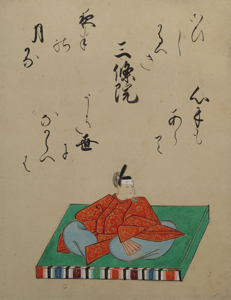 三條院
心にも
あらて
うき世に
なからへは
こひし
かるへき
夜半の
月かな